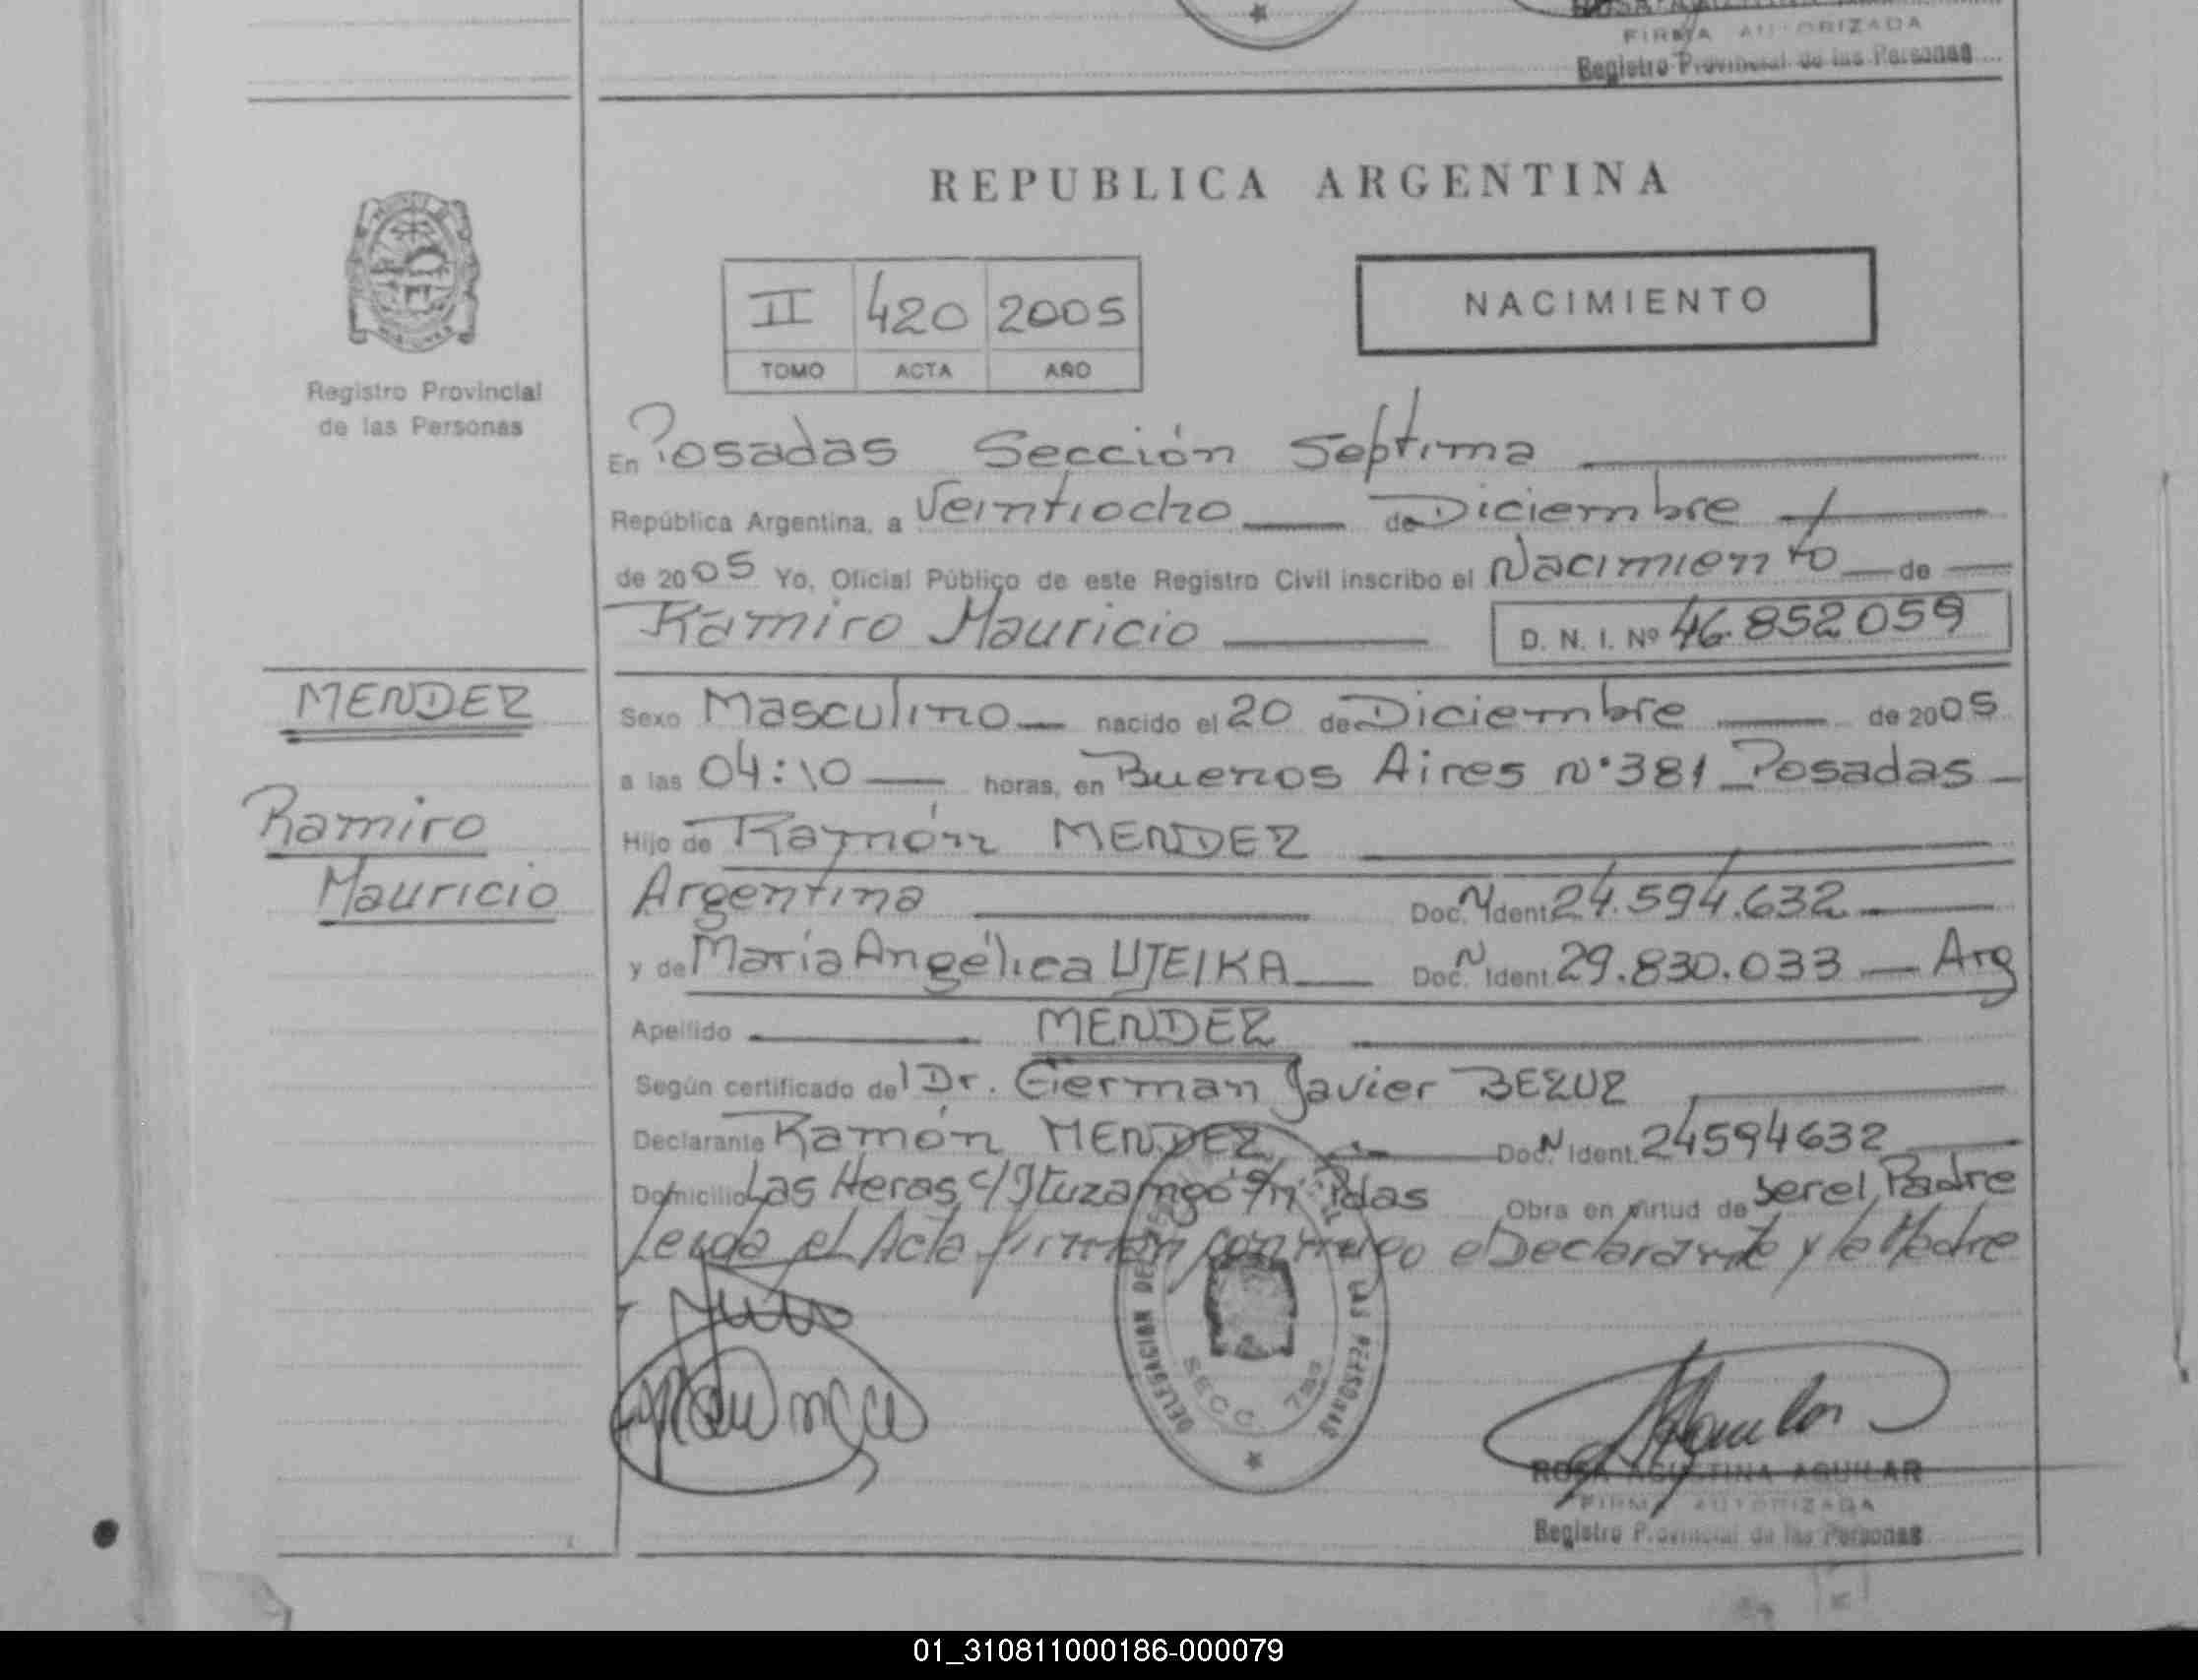 FIRMA AUTORIZADA
Registro Provincial de las Personas
REPUBLICA ARGENTINA
II 420 2005
TOMO ACTA AÑO
NACIMIENTO
Registro Provincial
de las Personas
En Posadas Sección Septima
República Argentina, a Veintiocho de Diciembre
de 2005 Yo, Oficial Público de este Registro Civil inscribo el Nacimiento de
Ramiro Mauricio D. N. I. Nº 46.852059
MENDEZ
Ramiro
Mauricio
Sexo Masculino nacido el 20 de Diciembre de 2005
a las 04:10 horas, en Buenos Aires Nº 381 Posadas
Hijo de Ramón MENDEZ
Argentina Doc. N Ident 24.594.632
y de María Angélica UJEIKA Doc. N Ident. 29.830.033 Arg
Apellido MENDEZ
Según certificado del Dr. German Javier BEZUZ
Declarante Ramón MENDEZ Doc. N Ident. 24594632
Domicilio Las Heras c/ Ituzaingó s/n Pdas Obra en virtud de ser el Padre
Leida el Acta firman conmigo el Declarante y la Madre
DELEGACION DE LAS PERSONAS
SECC. 7ma
ROSA AGUSTINA AGUILAR
FIRMA AUTORIZADA
Registro Provincial de las Personas
01_310811000186-000079